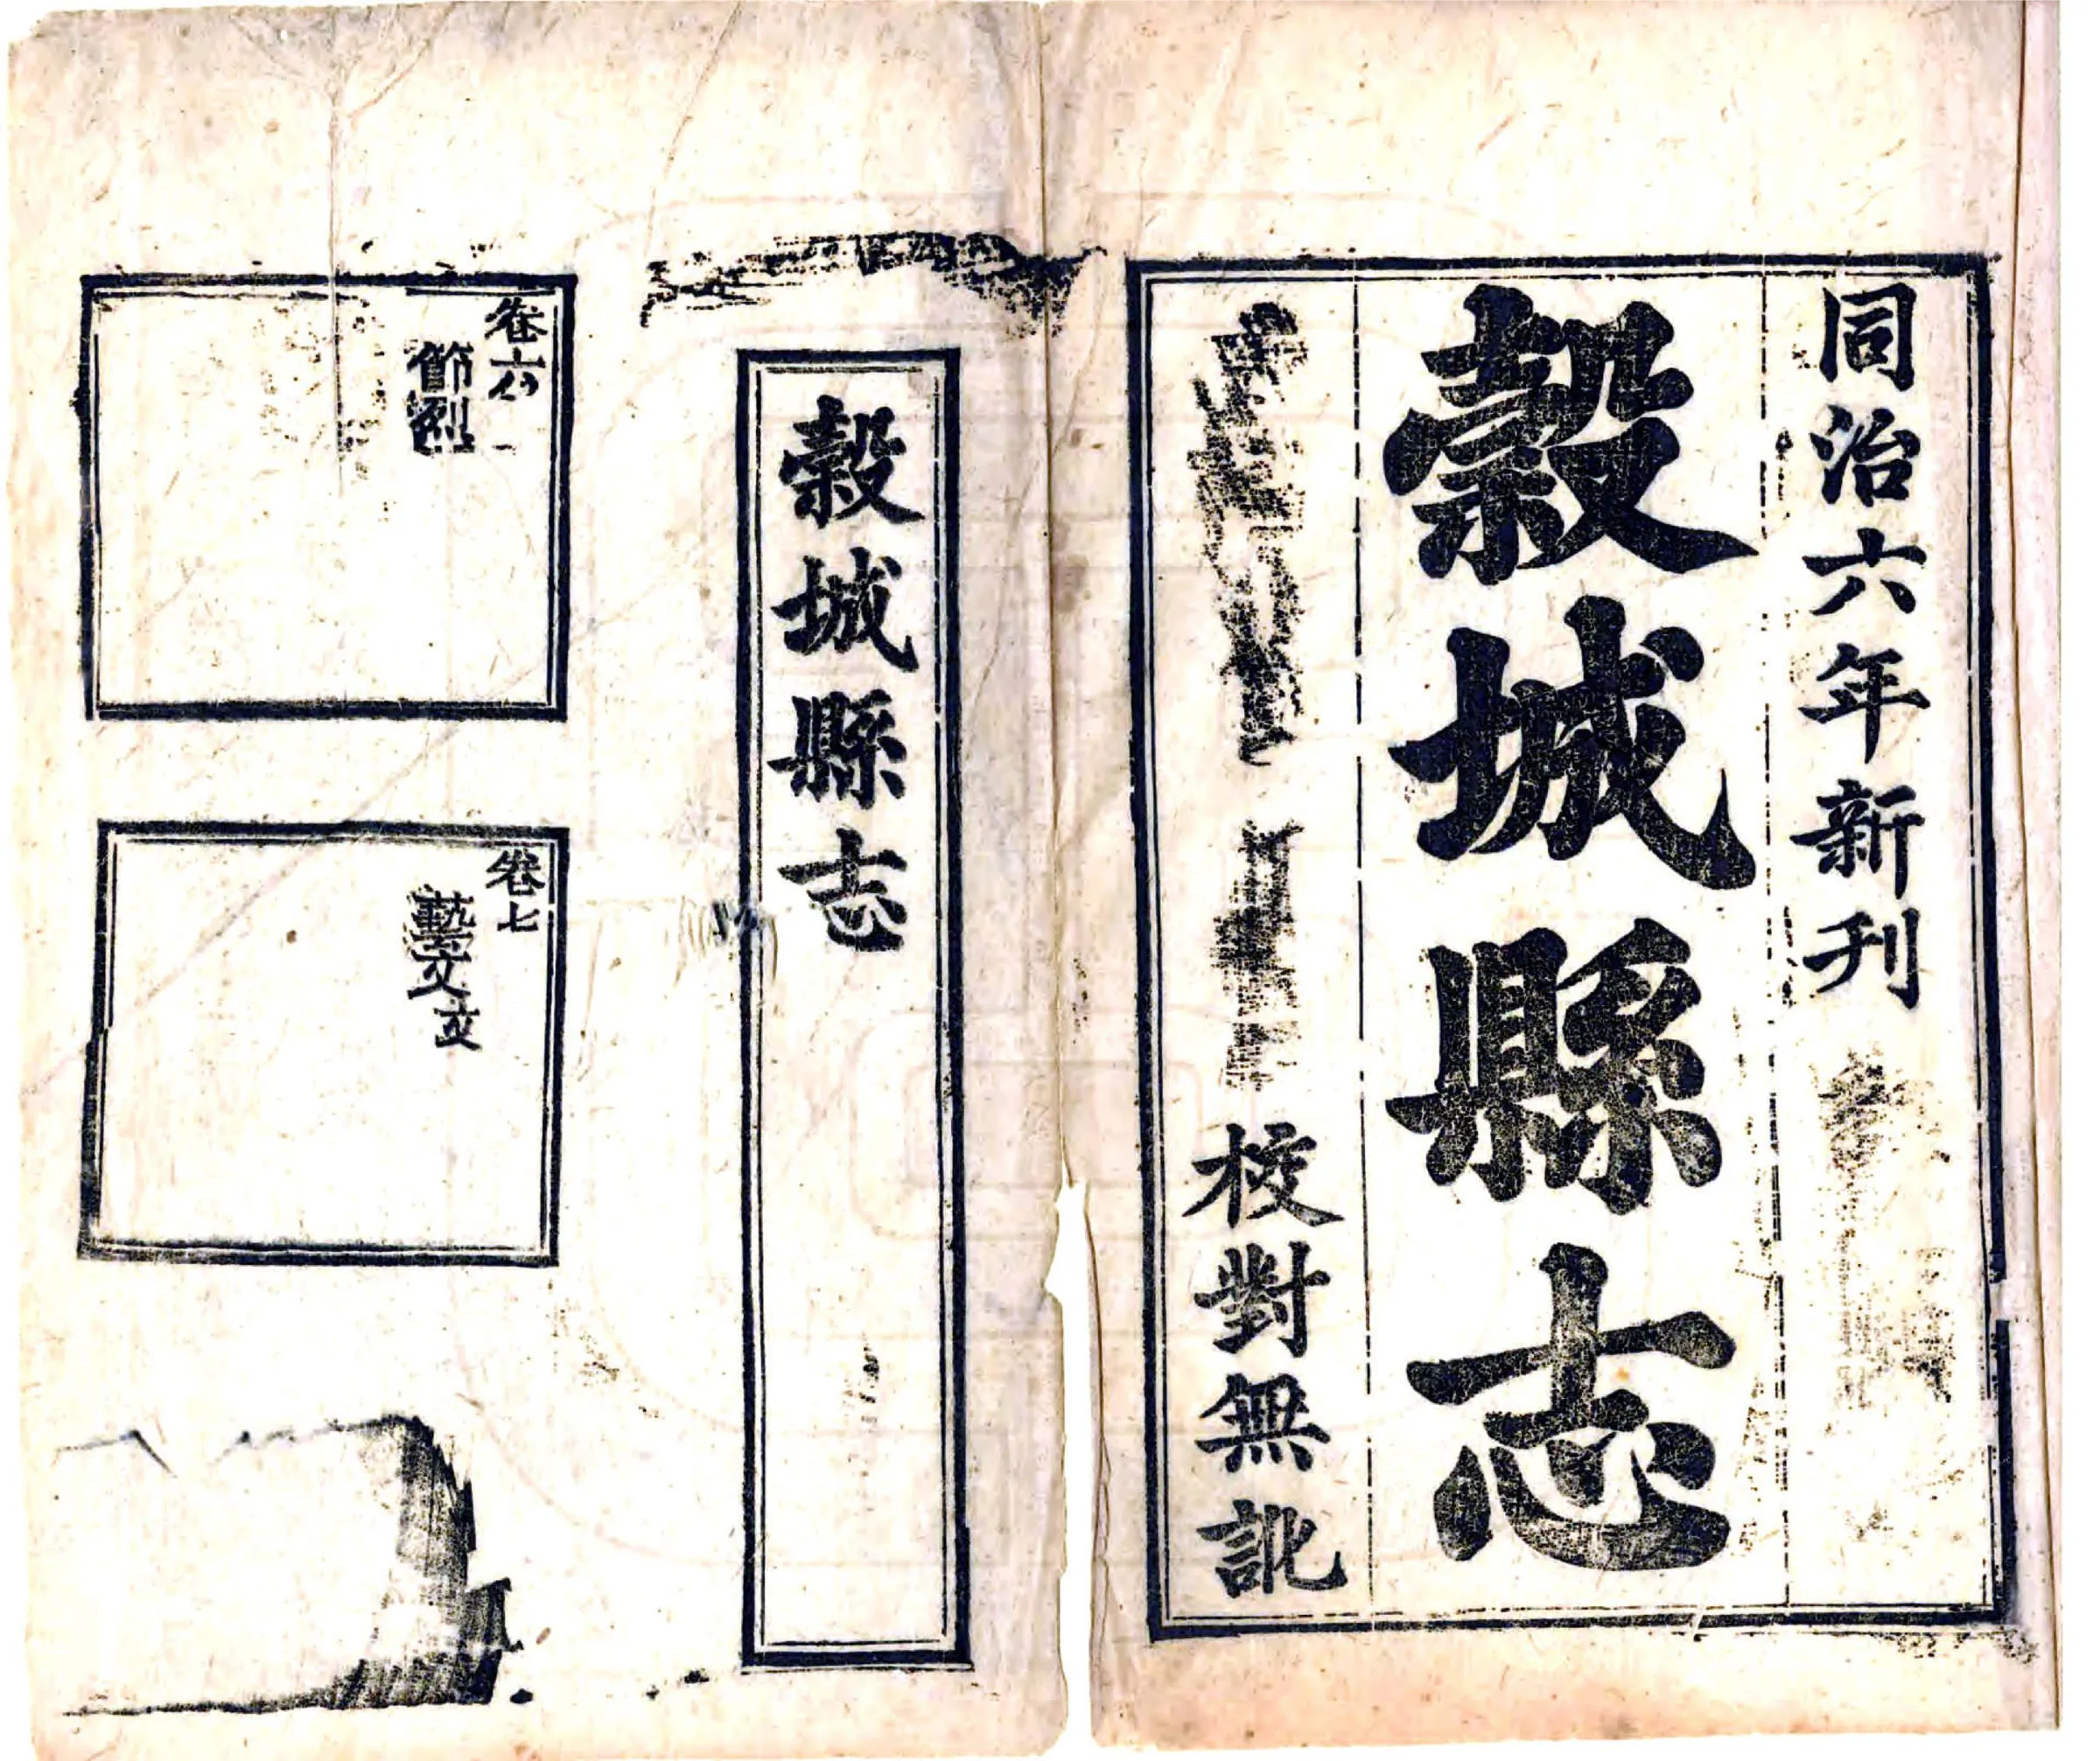 同治六年新刊
穀城縣志
校對無訛
穀城縣志
卷六
節烈
卷七
藝文
文